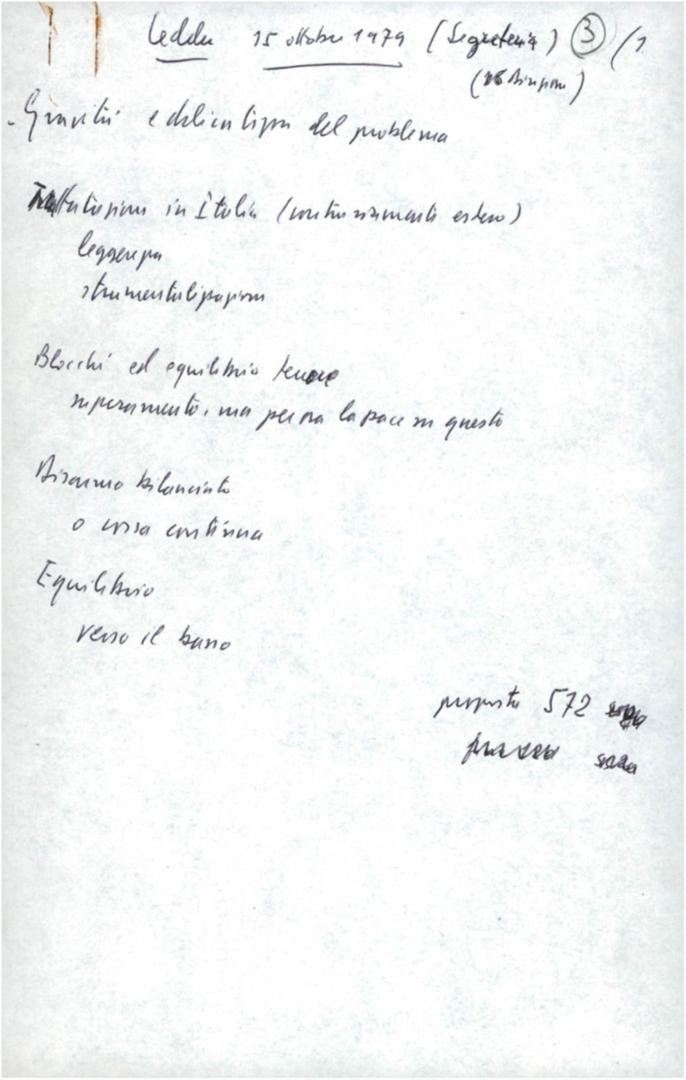 Ledda 15 ottobre 1979 (Segreteria) 3 /1
(18 Direzione)
- Gravità e delicatezza del problema
Trattazione in Italia (contrariamente estero)
leggerezza
strumentalizzazione
Blocchi ed equilibrio terrore
superamento, ma per ora la pace su questo
Disarmo bilanciato
o corsa continua
Equilibrio
verso il basso
proposta 572